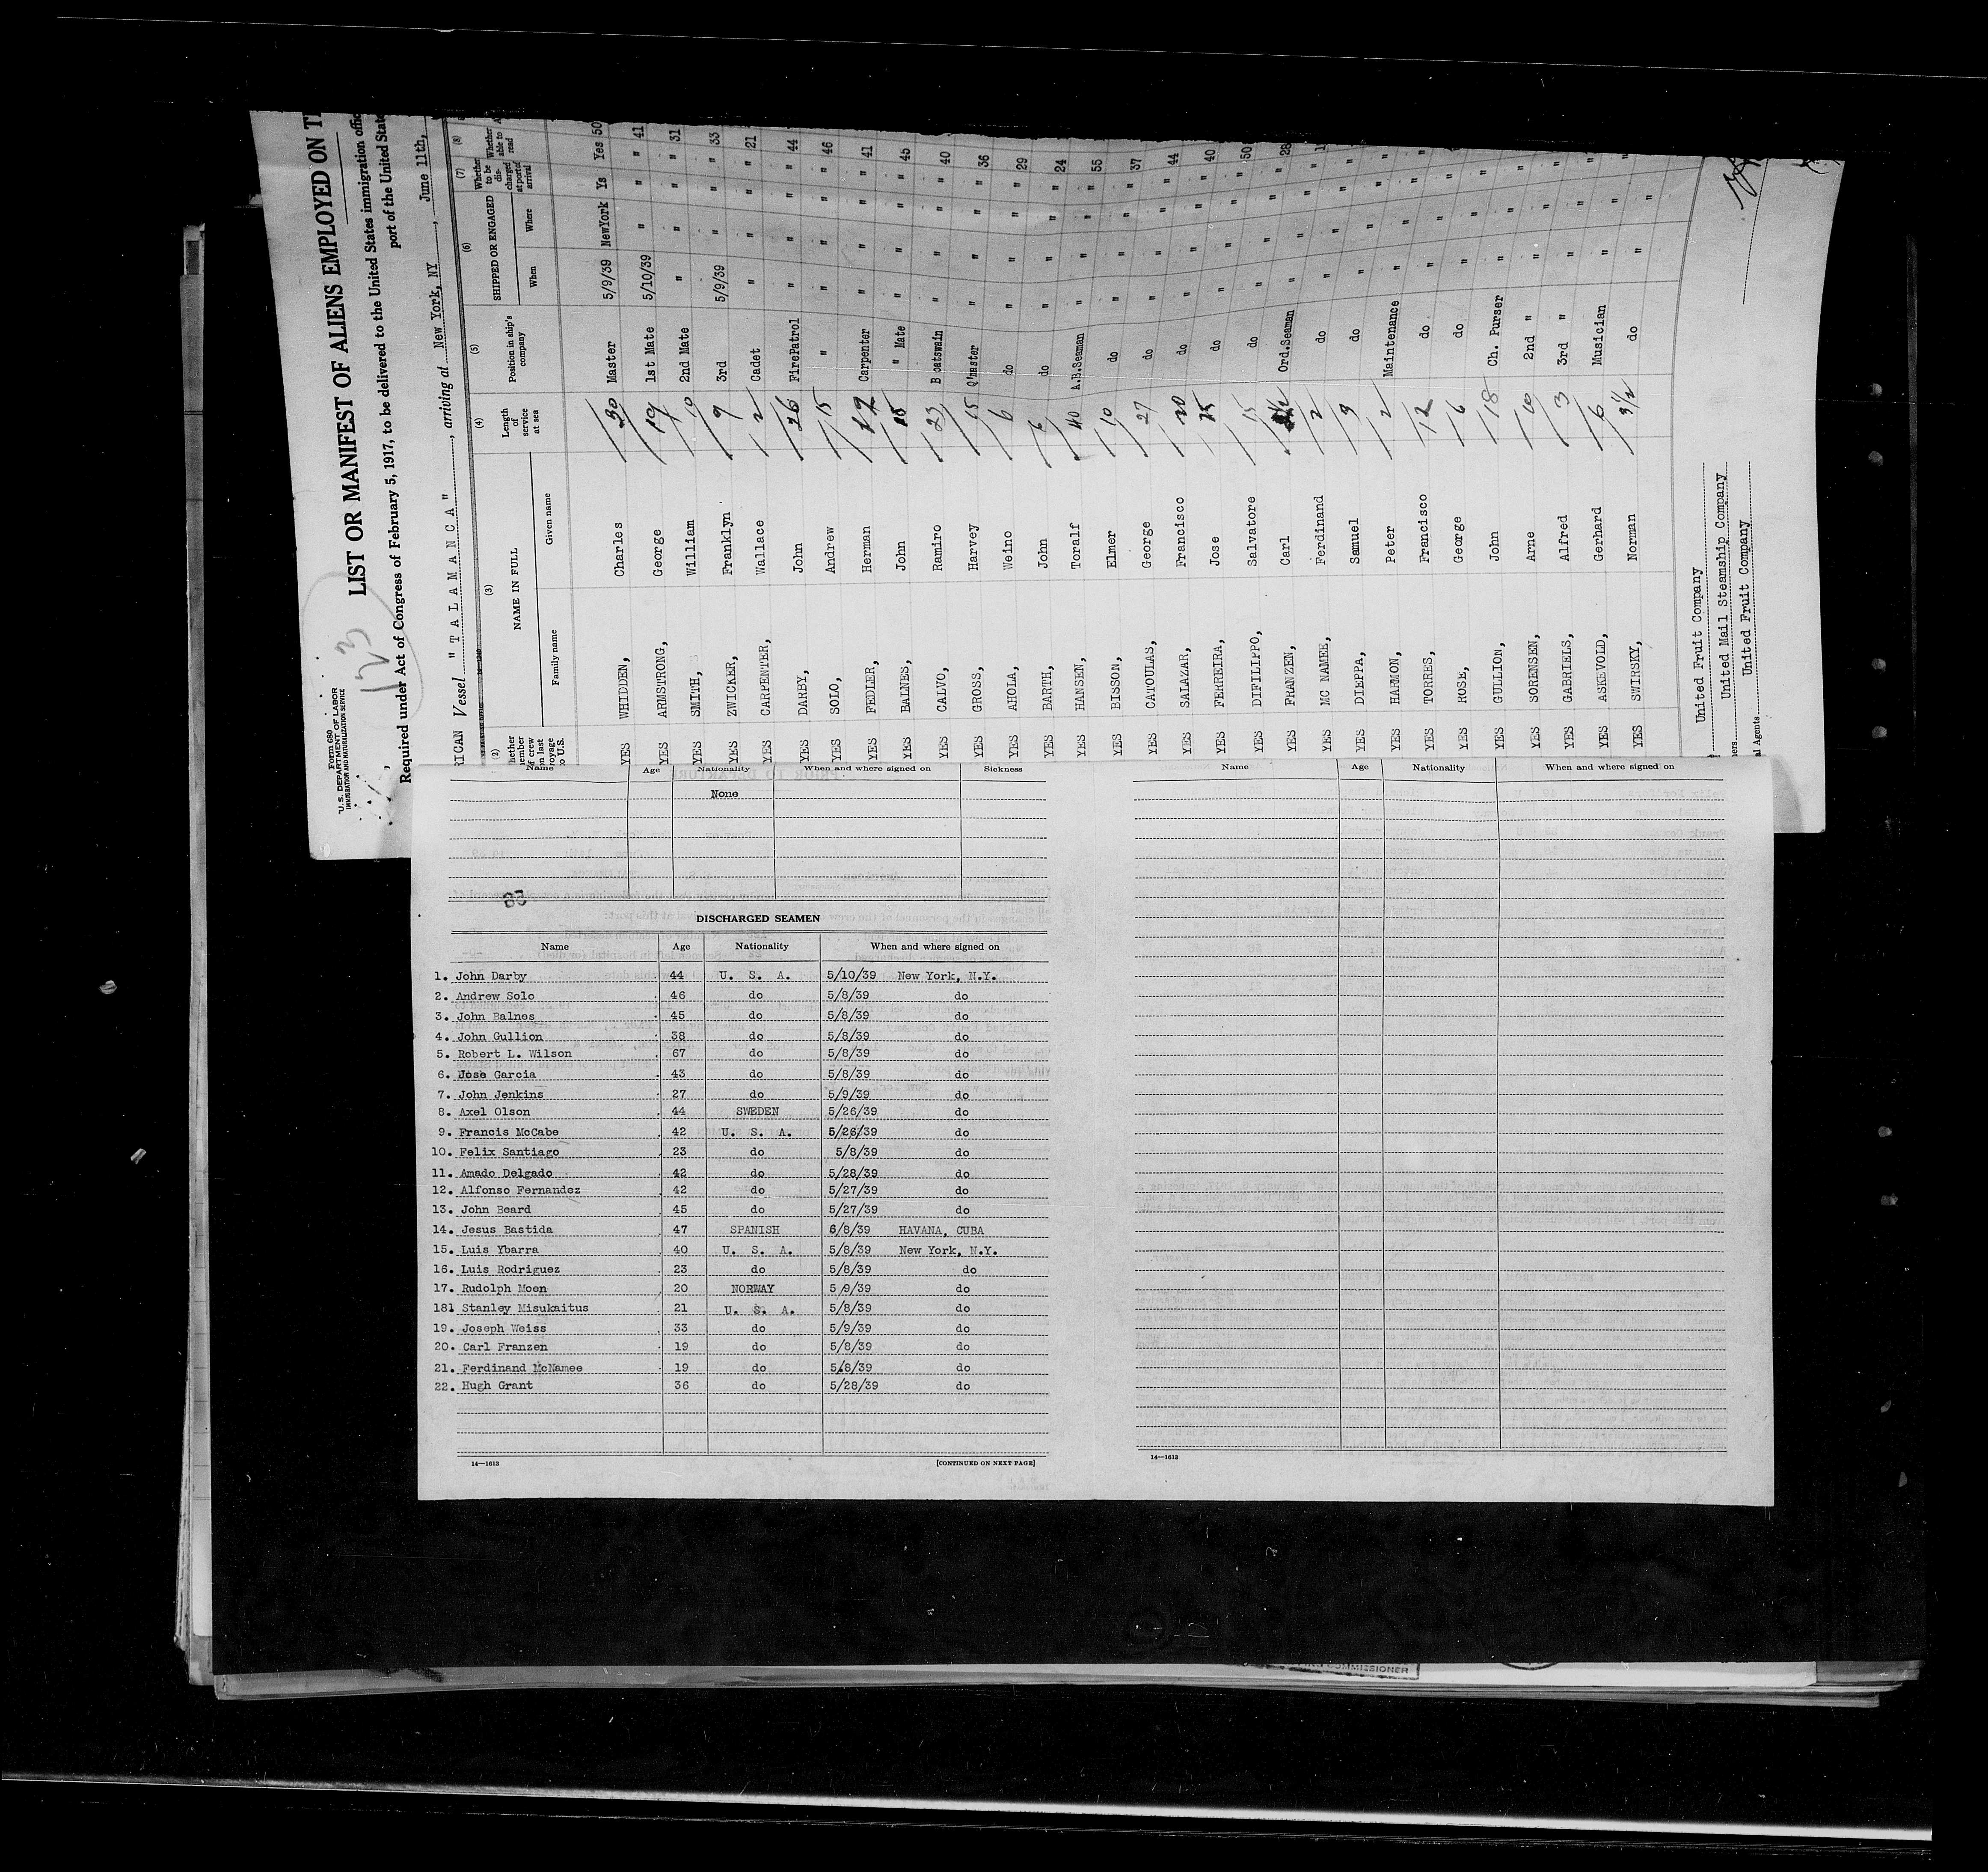 Form 680
U.S. DEPARTMENT OF LABOR
IMMIGRATION AND NATURALIZATION SERVICE
123
LIST OR MANIFEST OF ALIENS EMPLOYED ON
Required under Act of Congress of February 5, 1917, to be delivered to the United States immigration
port of the United
RICAN Vessel " T A L A M A N C A " , arriving at New York, NY , June 11th,
(2) (3) (4) (5) (6) (7) (8)
NAME IN FULL Length of service at sea Position in ship's company SHIPPED OR ENGAGED Whether to be discharged at port of arrival Whether able to read
Family name Given name When Where
YES WHIDDEN, Charles 30 Master 5/9/39 NewYork Ys Yes 50
YES ARMSTRONG, George 19 1st Mate 5/10/39 " " " 41
YES SMITH, William 10 2nd Mate " " " " 31
YES ZWICKER, Franklyn 9 3rd 5/9/39 " " " 33
YES CARPENTER, Wallace 2 Cadet " " " " 21
YES DARBY, John 26 FirePatrol " " " " 44
YES SOLO, Andrew 15 " " " " " 46
YES FEDLER, Herman Carpenter " " " " 41
YES BALNES, John 18 " Mate " " " " 45
YES CALVO, Ramiro 23 Boatswain " " " " 40
YES GROSS, Harvey 15 Q'master " " " " 36
YES AHOLA, Weino 6 do " " " " 29
YES BARTH, John do " " " " 24
YES HANSEN, Toralf 40 A.B.Seaman " " " " 55
YES BISSON, Elmer 10 do " " " " 37
YES CATOULAS, George 27 do " " " " 44
YES SALAZAR, Francisco 20 do " " " " 40
YES FERREIRA, Jose do " " " " 50
YES DIFILIPPO, Salvatore 15 do " " " " 28
YES FRANZEN, Carl Ord.Seaman " " " "
YES MC NAMEE, Ferdinand 2 do " " " "
YES DIEPPA, Samuel 3 do " " " "
YES HARMON, Peter 2 Maintenance " " " "
YES TORRES, Francisco 12 do " " " "
YES ROSE, George 6 do " " " "
YES GULLION, John 18 Ch. Purser " " " "
YES SORENSEN, Arne 10 2nd " " " " "
YES GABRIELS, Alfred 3 3rd " " " " "
YES ASKEVOLD, Gerhard 6 Musician " " " "
YES SWIRSKY, Norman 3 1/2 do " " " "
United Fruit Company
United Mail Steamship Company
United Fruit Company
Agents
Name Age Nationality When and where signed on Sickness
None
DISCHARGED SEAMEN
Name Age Nationality When and where signed on
1. John Darby 44 U. S. A. 5/10/39 New York, N.Y.
2. Andrew Solo 46 do 5/8/39 do
3. John Balnes 45 do 5/8/39 do
4. John Gullion 38 do 5/8/39 do
5. Robert L. Wilson 67 do 5/8/39 do
6. Jose Garcia 43 do 5/8/39 do
7. John Jenkins 27 do 5/9/39 do
8. Axel Olson 44 SWEDEN 5/26/39 do
9. Francis McCabe 42 U. S. A. 5/26/39 do
10. Felix Santiago 23 do 5/8/39 do
11. Amado Delgado 42 do 5/28/39 do
12. Alfonso Fernandez 42 do 5/27/39 do
13. John Beard 45 do 5/27/39 do
14. Jesus Bastida 47 SPANISH 6/8/39 HAVANA, CUBA
15. Luis Ybarra 40 U. S. A. 5/8/39 New York, N.Y.
16. Luis Rodriguez 23 do 5/8/39 do
17. Rudolph Moen 20 NORWAY 5/9/39 do
181 Stanley Misukaitus 21 U. S. A. 5/8/39 do
19. Joseph Weiss 33 do 5/9/39 do
20. Carl Franzen 19 do 5/8/39 do
21. Ferdinand McNamee 19 do 5/8/39 do
22. Hugh Grant 36 do 5/28/39 do
14—1613 [CONTINUED ON NEXT PAGE]
Name Age Nationality When and where signed on
14—1613
COMMISSIONER